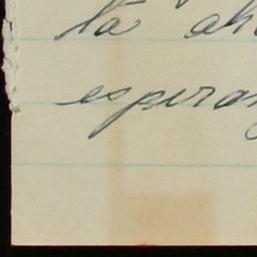 ta ah
espera